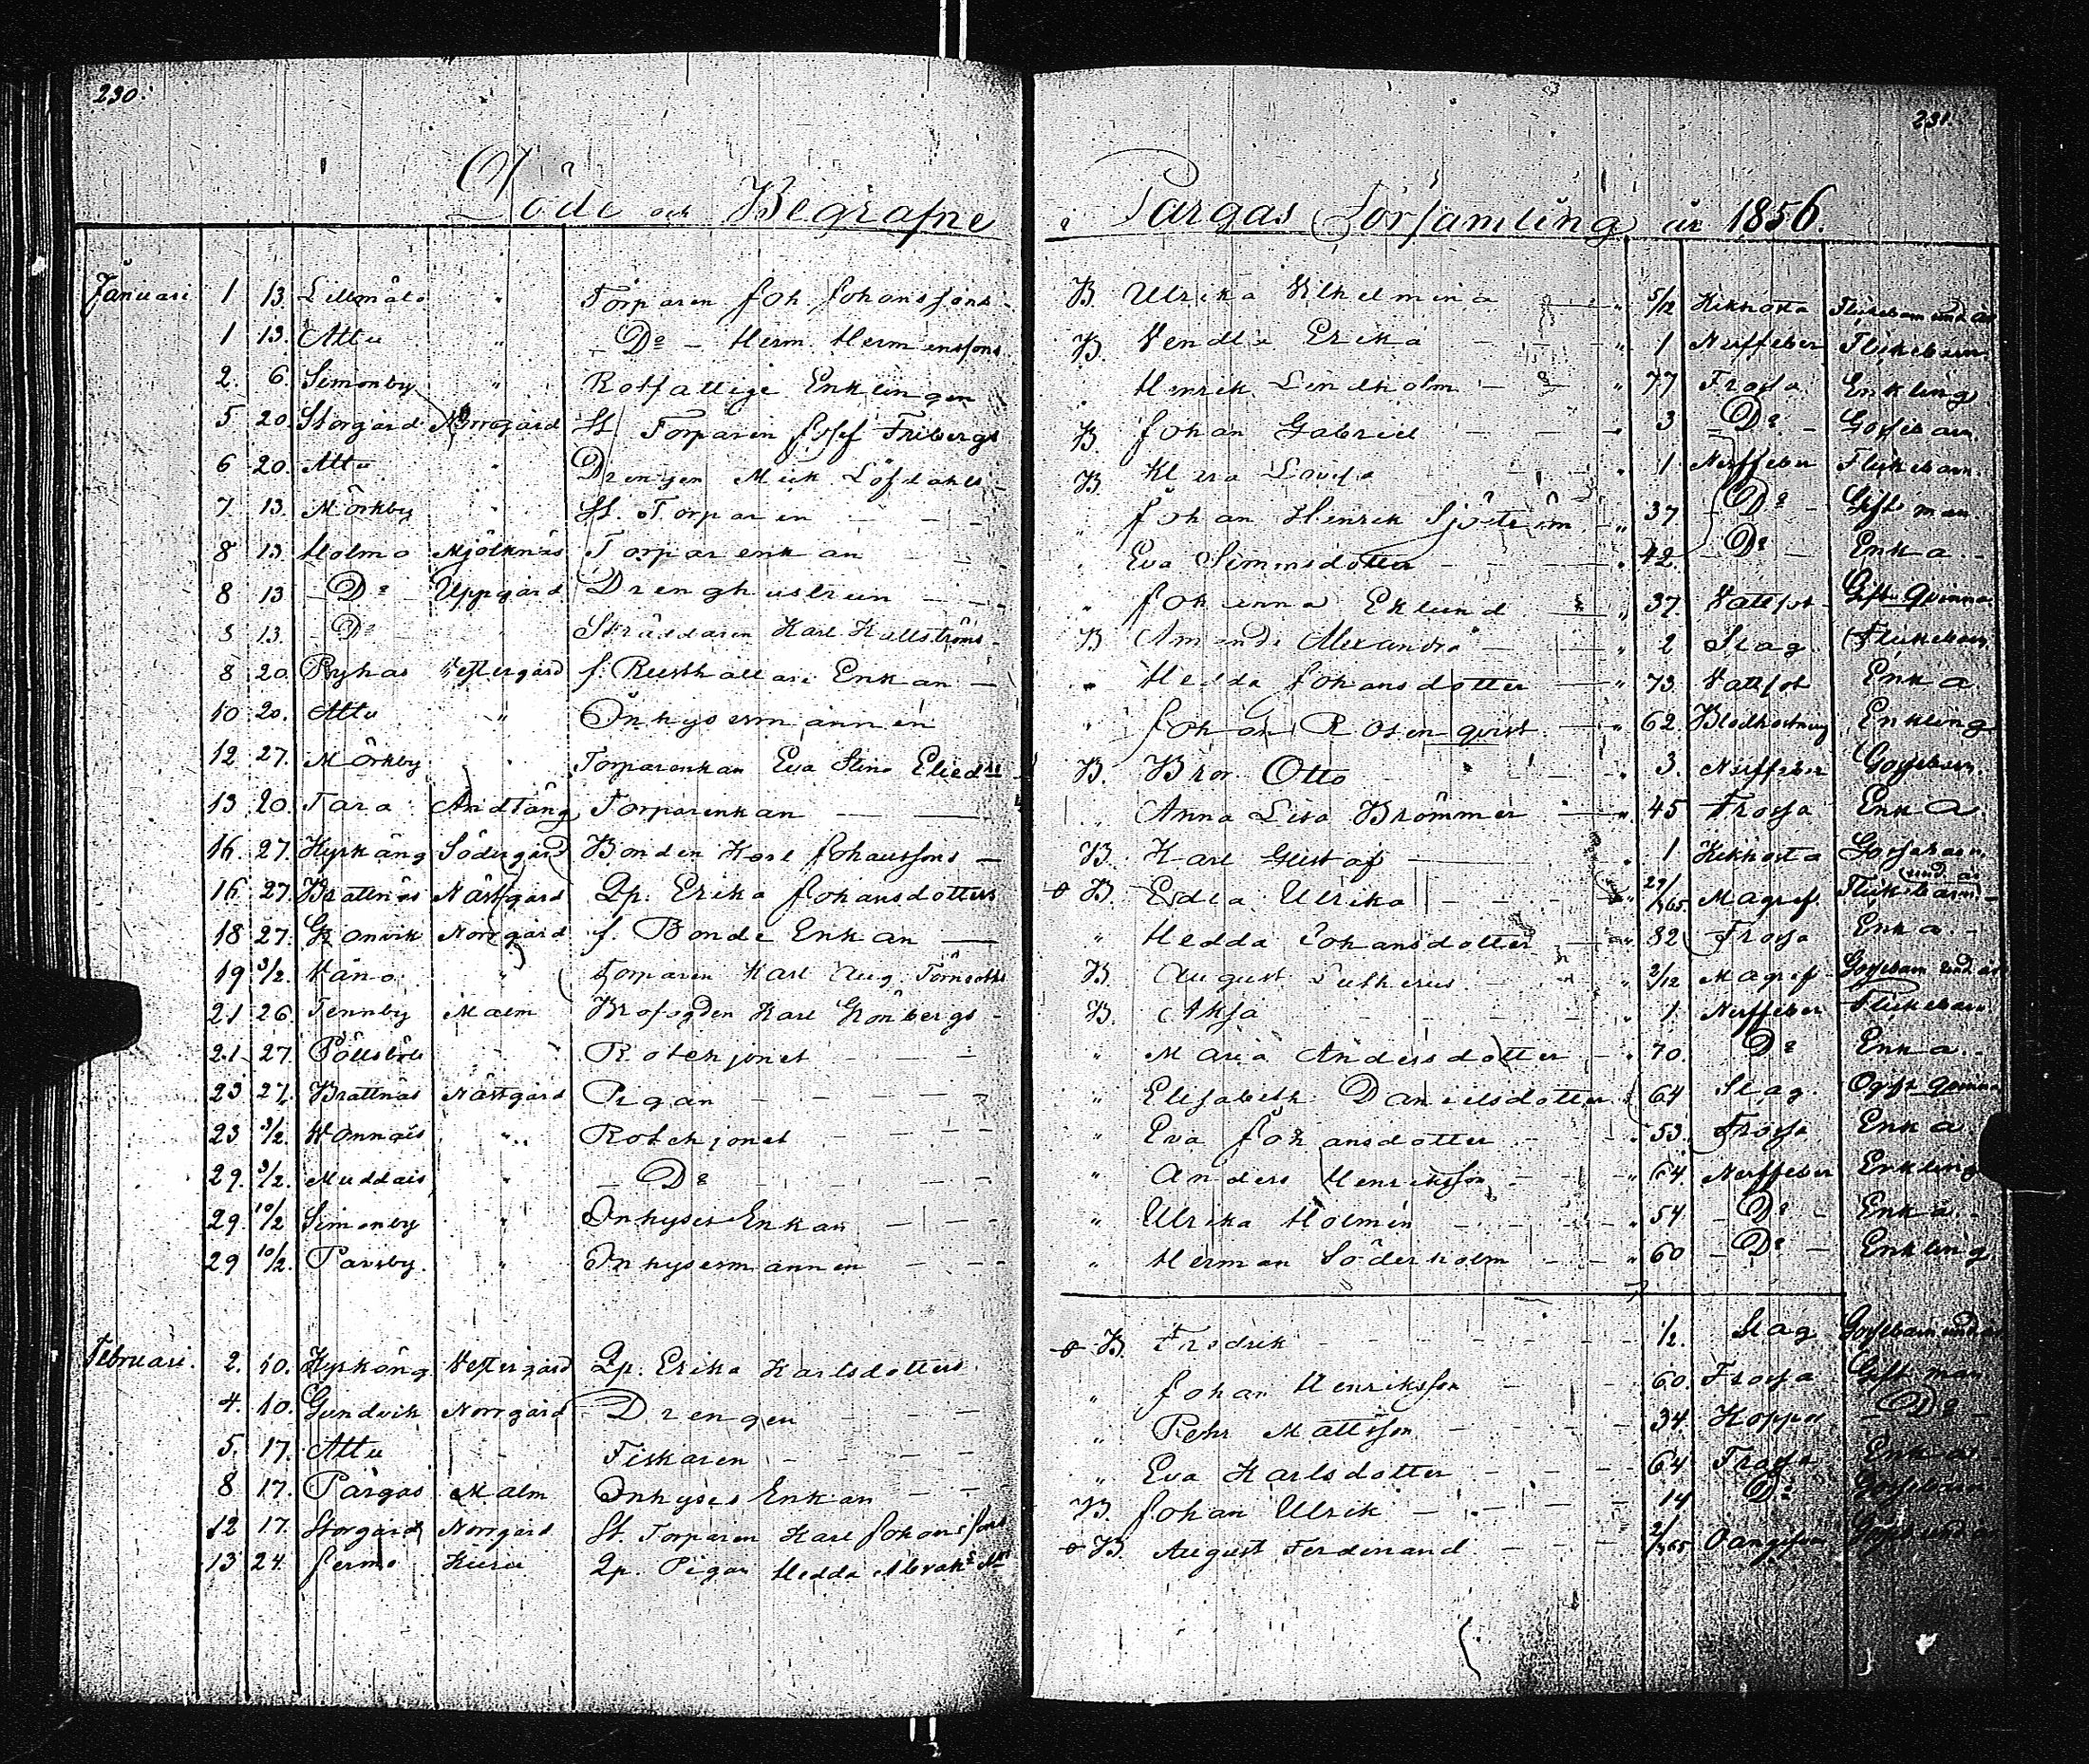 230.
231.
Döde och Begrafne i Pargas Församling år 1856.
Januari 1 13. Lillmälö " Torparen Joh. Johanssons B Ulrika Vilhelmina " 5/12 Kikhosta Flickebarn und. år
1 13. Attu " Do Herm. Hermanssons B. Vendla Erika " 1 Nerffeber Flickebarn
2. 6. Simonby " Rotfattige Enklingen " Henrik Lindholm " 77 Frossa Enkling
5 20. Storgård Norrgård St. Torparen Josef Fribergs B Johan Gabriel " 3 Do Gossebarn.
6 20. Attu " Drengen Mick. Löfdahls B Klara Lovisa " 1 Nerffeber Flickebarn.
7 13. Mörkby " St. Torparen " Johan Henrik Sjöström " 37 Do Gift man
8 13 Holmo Mjölknäs Torparenkan " Eva Simonsdotter " 42. Do Enka
8 13 Do Uppgård Drenghustrun " Johanna Eklund " 37. Vattsot Gift Qvinna
8 13. Do " Skräddaren Karl Kullströms B Amanda Alexandra " 2 Slag Flickebarn
8 20. Pyhas Vestergård f. Rusthållare Enkan " Hedda Johansdotter " 73. Vattsot Enka
10 20. Attu " Inhysermannen " Johan Rosenqvist " 62 Blodhostning Enkling
12 27. Mörkby " Torparenkan Eva Stina Elieds B. Bror Otto " 3. Nerffeber Gossebarn.
13 20. Tara Andtäng Torparenkan " Anna Lisa Brommer " 45 Frossa Enka
16. 27. Kyrkäng Södergård Bonden Karl Johanssons B. Karl Gustaf " 1 Kikhosta Gossebarn.
16 27. Brattnäs Nästgård Qp. Erika Johansdotters B. Edla Ulrika 29/365 Magref Flickebarn und. år
18 27. Granvik Norrgård f. Bonde Enkan " Hedda Johansdotter " 82 Frossa Enka
19 3/2. Vånå " Torparen Karl Aug. Törnroths B. August Lutherus " 2/12 Magref Gossebarn und. år
21 26. Tennby Malm Brofogden Karl Grönbergs B. Aksa " 1. Nerffeber Flickebarn
21 27. Pällsböle " Rotehjonet " Maria Andersdotter " 70. Do Enka
23 27. Brattnäs Nästgård Pigan " Elisabeth Danielsdotter 64 Slag. Ogift qvinna
23 3/2. Vannais " Rotehjonet " Eva Johansdotter " 53. Frossa Enka
29. 3/2. Muddais " Do " Anders Henriksson " 64. Nerffeber Enkling
29. 10/2 Simonby " Inhyses Enkan " Ulrika Holmen " 54 Do Enka
29 10/2. Parsby. " Inhysermannen " Herman Söderholm " 60 Do Enkling
Februari. 2. 10. Kyrkäng Vestergård Qp. Erika Karlsdotters B. Fredrik 1/2. Slag Gossebarn und. år
4. 10. Gundvik Norrgård Drengen " Johan Henriksson 60. Frossa Gift man
5. 17. Attu Fiskaren " Pehr Mattsson 34. Koppor Do
8 17. Pargas Malm Inhyses Enkan " Eva Karlsdotter 64 Frossa Enka
12 17. Storgård Norrgård St. Torparen Karl Johanssons B. Johan Ulrik 14 Do Gossebarn
13 24. Jermo Kura Qp. Pigan Hedda B. August Ferdinand 2/365